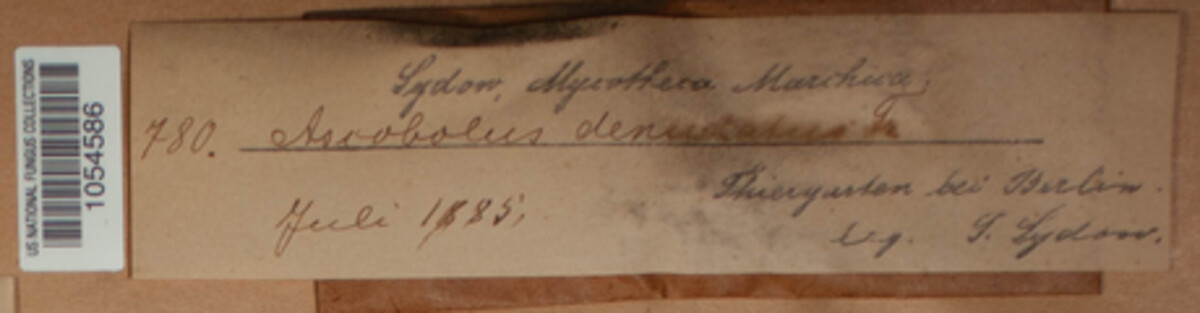 US NATIONAL FUNGUS COLLECTIONS
1054586
Sydow, Mycotheca Marchica,
780. Ascobolus denudatus Fr
Juli 1885,
Thiergarten bei Berlin.
leg. P. Sydow.